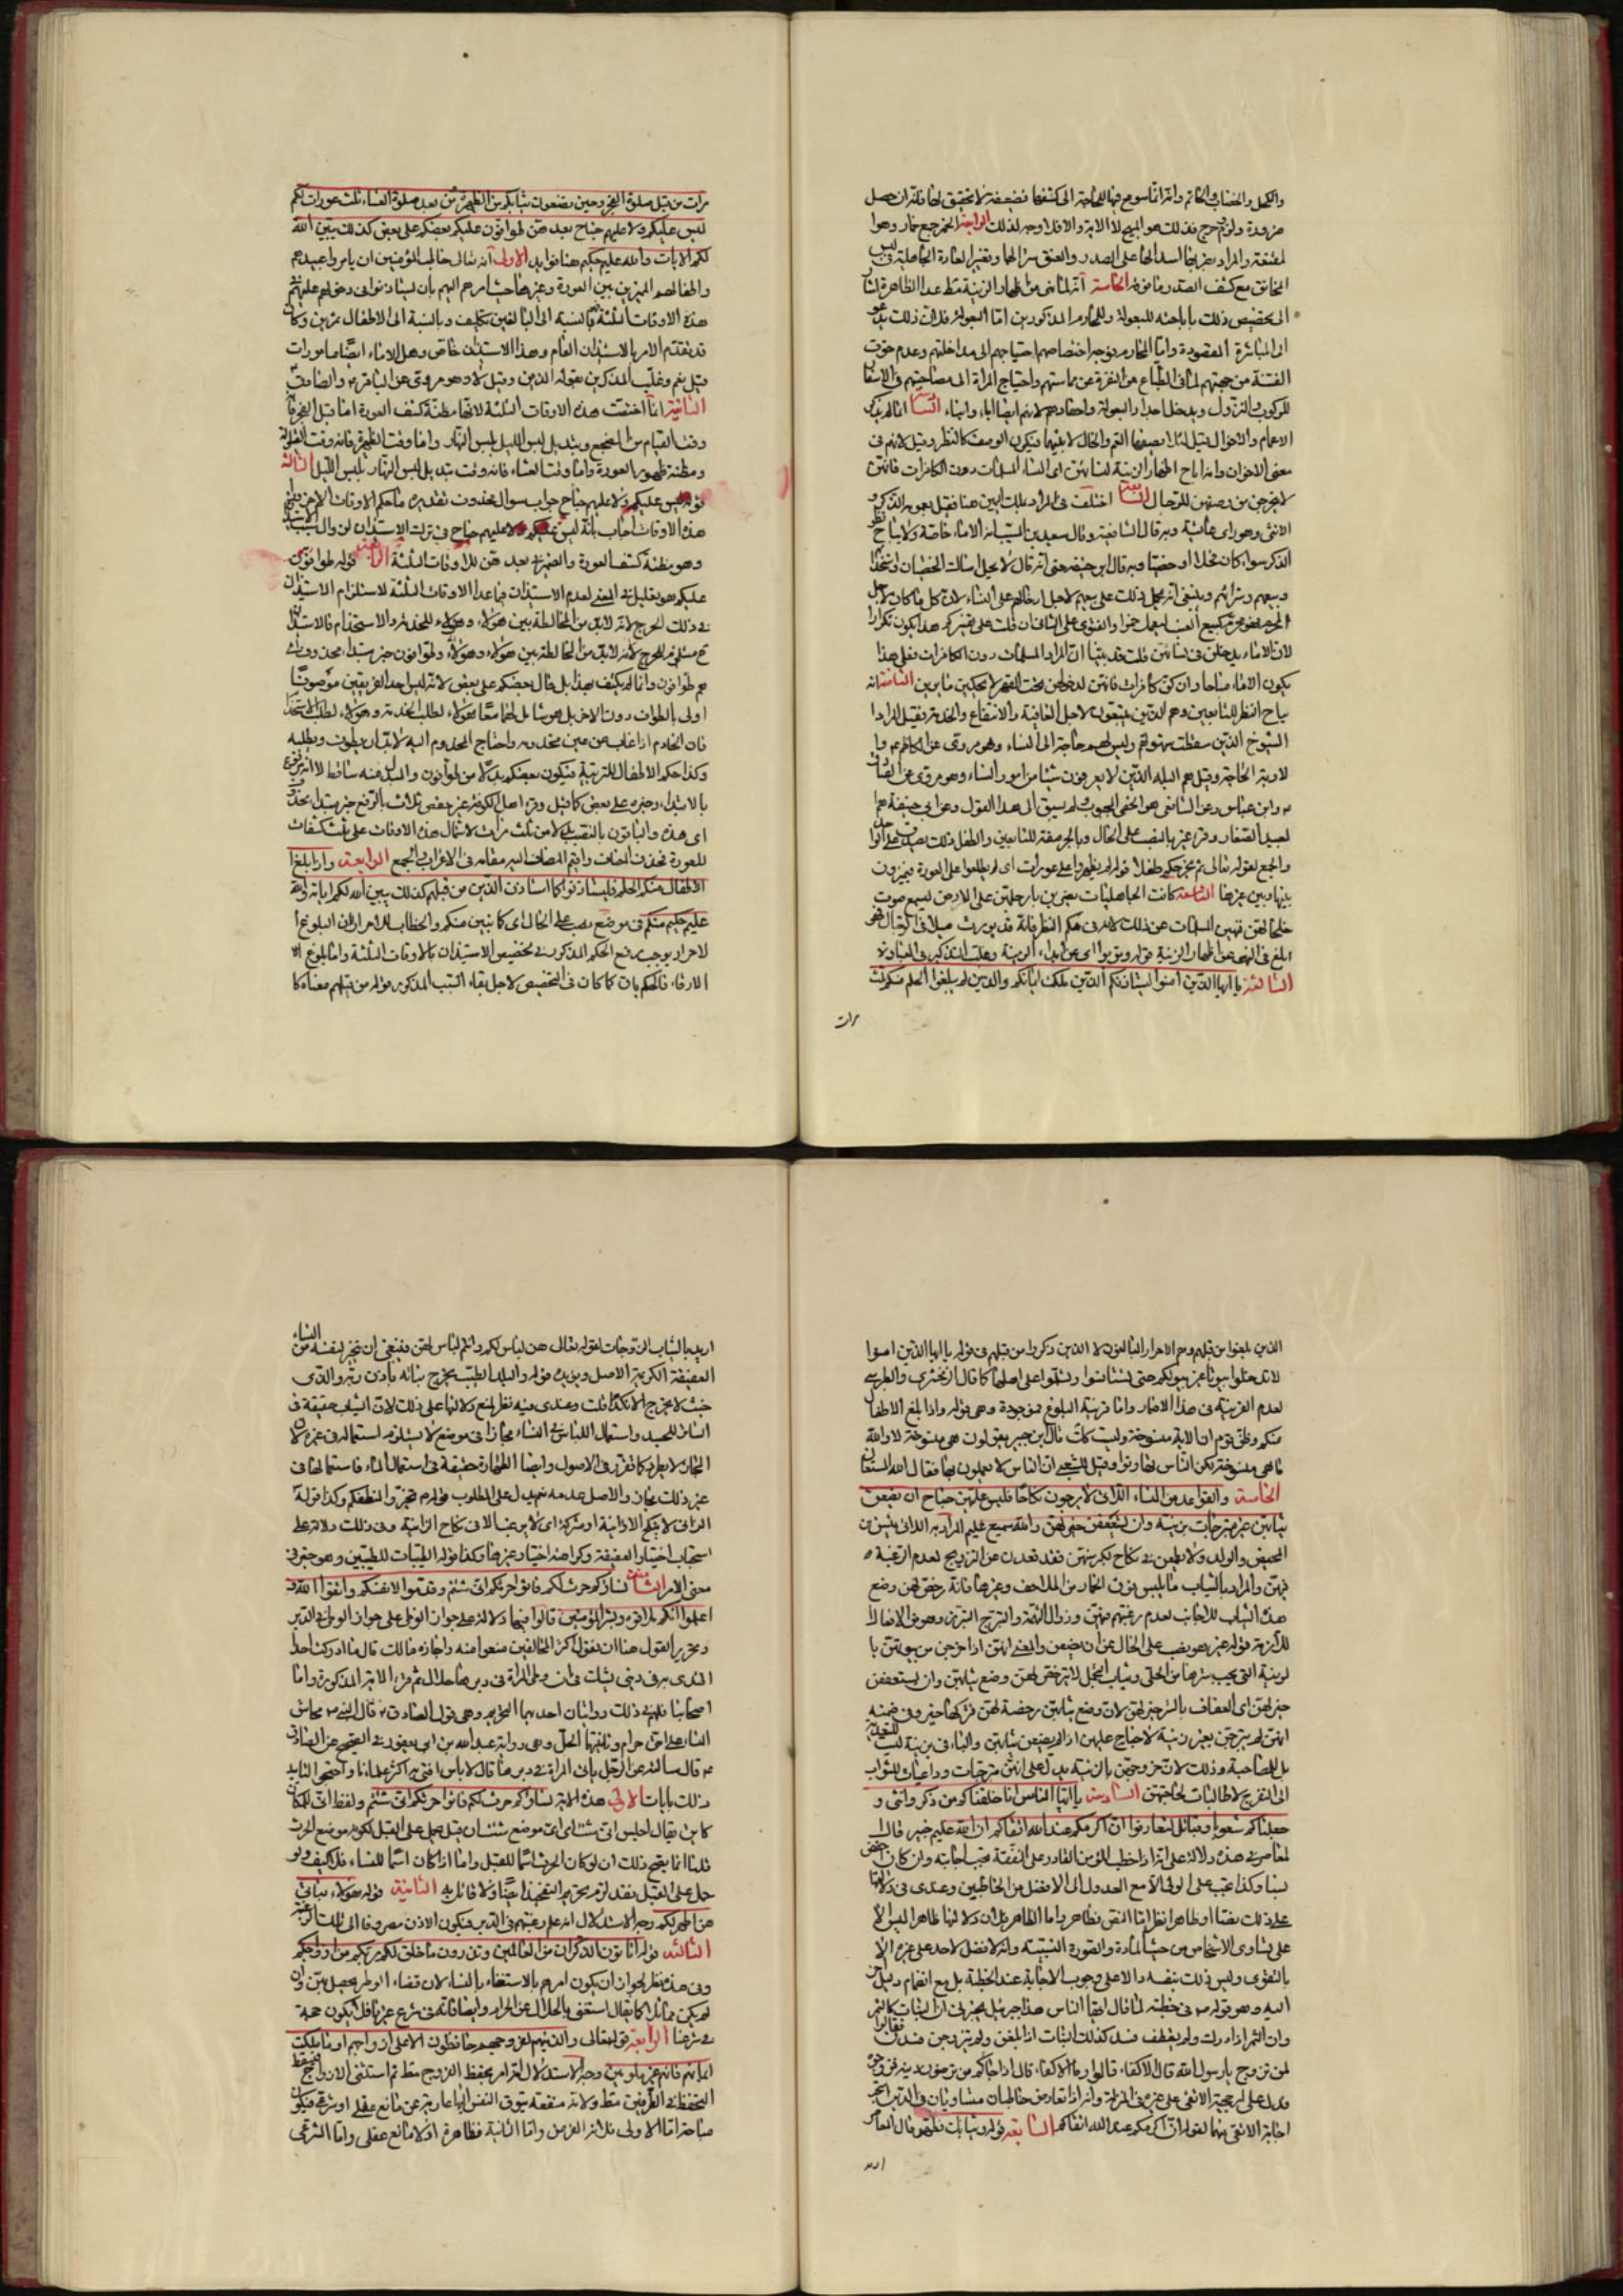 والكحل والخضاب والخاتم وانه انما سومح فيها للحاجة الى كشفها فضعيف لا تحقيق لها فانه ان حصل
ضرورة ولزوم حرج فذلك هو المبيح لا الآية والا فلا وجه لذلك الرابعة الخمر جمع خمار وهو ا
لمقنعة والمراد بضربها اسدالها على الصدر والعنق سترا لها وتغييرا لعادة الجاهلية في لبس
المخانق مع كشف الصدر وما فوقه الخامسة انه لما نهى عن اظهار الزينة فيما عدا الظاهرة اشار
الى تخصيص ذلك باباحته للبعولة وللمحارم المذكورين اما البعولة فلان ذلك يدعو
الى المباشرة المقصودة واما المحارم فوجه اختصاصهم احتياجهم الى مداخلتهم وعدم خوف
الفتنة من جهتهم لما في الطباع من النفرة عن مماستهم واحتياج المرأة الى مصاحبتهم في الاسفار
للركوب والنزول ويدخل اجداد البعولة واحفادهم لانهم ايضا آباء وابناء السادسة انما لم يذكر
الاعمام والاخوال قيل لئلا يصفها العم والخال لابنيهما فيكون الوصف كالنظر وقيل لانهم في
معنى الاخوان وانما اباح اظهار الزينة لنسائهن اى النساء المسلمات دون الكافرات فانهن
لا يتحرجن من وصفهن للرجال السابعة اختلف في المراد بملك اليمين هنا فقيل يعم الذكر و
الانثى وهو رأى عائشة وبه قال الشافعية وقال سعيد بن المسيب انه الاماء خاصة ولا يباح نظر
الذكر سواء كان فحلا او خصيا وبه قال ابن حنيفة حتى انه قال لا يحل امساك الخصيان واستخدامهم
وبيعهم وشراؤهم وينبغي انه يحمل ذلك على بيعهم لاجل ادخالهم على النساء لان كل ما كان لاجل
المحرم فهو محرم كبيع العنب ليعمل خمرا والفتوى على الثاني ان قلت على تفسيركم هذا يكون تكرارا
لان الاماء يدخلن في نسائهن قلت قد بينا ان المراد المسلمات دون الكافرات فعلى هذا
يكون الاماء مباحا وان كن كافرات فانهن لدخولهن تحت القهر لا يحكين ما يرين الثامنة انه
يباح النظر للتابعين وهم الذين يتبعون لاجل العافية والانتفاع والخدمة فقيل المراد ا
لشيوخ الذين سقطت شهوتهم وليس لهم حاجة الى النساء وهو مروى عن الكاظم ع وا
لاربة الحاجة وقيل هم البله الذين لا يعرفون شيئا من امور النساء وهو مروى عن الصادق
ع وابن عباس وعن الشافعي هو الخصي المجبوب ولم يسبق الى هذا القول وعن ابي حنيفة هم ا
لعبيد الصغار وقرئ غير بالنصب على الحال وبالجر صفة للتابعين والطفل ذلك يصدق على الواحد
والجمع لقوله تعالى ثم نخرجكم طفلا قوله لم يظهروا على عورات اى لم يطلعوا على العورة فيميزون
بينها وبين غيرها التاسعة كانت الجاهليات يضربن بارجلهن على الارض ليسمع صوت
خلخالهن فنهين المسلمات عن ذلك لانه في حكم النظر فانه قد يورث ميلا في الرجال وهو
ابلغ في النهى عن اظهار الزينة قوله وتوبوا اى عن ابداء الزينة وغلب التذكير في العبادة
الثالثة يا ايها الذين آمنوا ليستأذنكم الذين ملكت ايمانكم والذين لم يبلغوا الحلم منكم ثلث
مرات
مرات من قبل صلوة الفجر وحين تضعون ثيابكم من الظهيرة ومن بعد صلوة العشاء ثلث عورات لكم
ليس عليكم ولا عليهم جناح بعدهن طوافون عليكم بعضكم على بعض كذلك يبين الله
لكم الآيات والله عليم حكيم هنا فوايد الاولى انه تعالى خاطب المؤمنين ان يامروا عبيدهم
واطفالهم المميزين بين العورة وغيرها حيث امرهم اليهم بان يستاذنوا في دخولهم عليهم في
هذه الاوقات الثلثة فبالنسبة الى البالغين تكليف وبالنسبة الى الاطفال تمرين وكان
قد تقدم الامر بالاستيذان العام وهذا الاستيذان خاص وهل الاماء ايضا مامورات
قيل نعم وغلب المذكرين بقوله الذين وقيل لا وهو مروى عن الباقر ع والصادق
الثانية انما اختصت هذه الاوقات الثلثة لانها مظنة كشف العورة اما قبل الفجر فانه
وقت القيام من المضجع وتبديل لبس الليل بلبس النهار واما وقت الظهيرة فانه وقت القيلولة
ومظنة ظهور العورة واما وقت العشاء فانه وقت تبديل لبس النهار بلبس الليل الثالثة
قوله ليس عليكم ولا عليهم جناح جواب سوال محذوف تقديره ما حكم الاوقات الاخر غير
هذه الاوقات اجاب بانه ليس عليكم ولا عليهم جناح في ترك الاستيذان لزوال السبب
وهو مظنة كشف العورة والضمير في بعدهن للاوقات الثلثة الرابعة قوله طوافون
عليكم هو تعليل في المعنى لعدم الاستيذان فيما عدا الاوقات الثلثة لاستلزام الاستيذان
في ذلك الحرج لانه لابد من المخالطة بين هؤلاء وهؤلاء للخدمة والاستخدام فالاستيذان
ح مستلزم للحرج لانه لابد من المخالطة بين هؤلاء وهؤلاء وطوافون خبر مبتداء محذوف اى
هم طوافون وانما لم يكتف بهذا بل قال بعضكم على بعض لانه ليس احد الفريقين موصوفا
اولى بالطواف دون الآخر بل هو شامل لهما معا هؤلاء لطلب الخدمة وهؤلاء لطلب الاستخدام
فان الخادم اذا غاب عن عين مخدومه واحتاج المخدوم اليه لابد ان يطوف ويطلبه
وكذا حكم الاطفال للتربية فيكون بعضكم بدلا من طوافون والمبدل منه ساقط لا انه مرفوع
بالابتداء وخبره على بعض كما قيل وقرء اهل الكوفة غير حفص ثلاث بالرفع خبر مبتداء محذوف
اى هذه والباقون بالنصب بدلا من ثلث مرات لاشتمال هذه الاوقات على ثلث كشفات
للعورة فحذف المضاف واقيم المضاف اليه مقامه في الاعراب والجمع الرابعة واذا بلغ ا
لاطفال منكم الحلم فليستاذنوا كما استاذن الذين من قبلهم كذلك يبين الله لكم آياته والله
عليم حكيم منكم في موضع نصب على الحال اى كائنين منكم والخطاب للاحرار لان البلوغ في ا
لاحرار يوجب رفع الحكم المذكور في تخصيص الاستيذان بالاوقات الثلثة واما بلوغ ا
لارقاء فالحكم باق كما كان في التخصيص لاجل بقاء السبب المذكور قوله من قبلهم معناه كما
الذين بلغوا من قبلهم وهم الاحرار البالغون لا الذين ذكروا من قبلهم في قوله يا ايها الذين امنوا
لا تدخلوا بيوتا غير بيوتكم حتى تستانسوا وتسلموا على اهلها كما قال الزمخشري والطبرسي
لعدم القرينة في هذا الاضمار واما قرينة البلوغ فموجودة وهى قوله واذا بلغ الاطفال
منكم وظن قوم ان الآية منسوخة وليست كذلك قال ابن جبير يقولون هى منسوخة لا والله
ما هي منسوخة لكن الناس تهاونوا وقيل للشعبي ان الناس لا يعملون بها فقال الله المستعان
الخامسة والقواعد من النساء اللاتى لا يرجون نكاحا فليس عليهن جناح ان يضعن
ثيابهن غير متبرجات بزينة وان يستعففن خير لهن والله سميع عليم المراد به اللاتى يئسن من
المحيض والولد ولا يطمعن في نكاح لكبر سنهن فقد قعدن عن التزويج لعدم الرغبة
فيهن والمراد بالثياب ما يلبس فوق الخمار من الملاحف وغيرها فانه رخص لهن وضع
هذه الثياب للاجانب لعدم رغبتهم فيهن وزوال التهمة والتبرج التزين وهو من الافعال ا
للازمة قوله غير هو نصب على الحال من ان يضعن والمعنى انهن اذا خرجن من بيوتهن با
لزينة التى يجب سترها من الحلى وثياب التجمل لا يرخص لهن وضع ثيابهن وان يستعففن
خير لهن اى العفاف بالستر خير لهن لان وضع ثيابهن رخصة لهن فتركها خير وفي ضمنه
انهن لم يتبرجن بغير زينة لا جناح عليهن اذا لم يضعن ثيابهن والباء في بزينة ليست للتعدية
بل للمصاحبة وذلك لان خروجهن بالزينة يدل على انهن متبرجات وداعيات للشواب
الى التفرج لا طالبات لحاجتهن السادسة يا ايها الناس انا خلقناكم من ذكر وانثى و
جعلناكم شعوبا وقبائل لتعارفوا ان اكرمكم عند الله اتقاكم ان الله عليم خبير قال ا
لمعاصر في هذه دلالة على انه اذا خطب المؤمن القادر على النفقة تجب اجابته وان كان اخفض
نسبا وكذا تجب على الولى الا مع العدول الى الافضل من الخاطبين وعندى في دلالتها
على ذلك نصا او ظاهرا نظر اما النص فظاهر واما الظاهر فلان دلالتها ظاهرا ليس الا
على تساوى الاشخاص من حيث المادة والصورة النسبية وانه لا فضل لاحد على غيره الا
بالتقوى وليس ذلك بنفسه دالا على وجوب الاجابة عند الخطبة بل مع انضمام دليل من
السنة وهو قوله ص في خطبته لما قال ايها الناس هذا جبرئيل يخبرنى ان البنات كالثمر
وان الثمر اذا ادرك ولم يقطف فسد كذلك البنات اذا بلغن ولم يتزوجن فسدن فقالوا
لمن تزوج يا رسول الله قال الاكفاء قالوا وما الاكفاء قال اذا جاءكم من ترضون دينه فزوجوه
فدل على ارجحية الاتقى على غيره في المزاوجة وانه اذا تعارض خاطبان متساويان في الدين انحصر
اجابة الاتقى منهما لقوله ان اكرمكم عند الله اتقاكم السابعة قوله وثيابك فطهر قال المعاصر
اريد
اريد بالثياب الزوجات لقوله تعالى هن لباس لكم وانتم لباس لهن فينبغى ان يتخير لنفسه من النساء
العفيفة الكريمة الاصل ويؤيده قوله والبلد الطيب يخرج نباته باذن ربه والذى
خبث لا يخرج الا نكدا قلت وعندى فيه نظر لمنع دلالتها على ذلك لان الثياب حقيقة في
الساتر للجسد واستعمال اللباس في النساء مجازا في موضع لا يستلزم استعماله في غيره لان
المجاز لا يطرد كما تقرر في الاصول وايضا الطهارة حقيقة في استعمال الماء فاستعمالها في
غير ذلك مجاز والاصل عدمه نعم يدل على المطلوب قوله ص تخيروا لنطفكم وكذا قوله
الزانى لا ينكح الا زانية او مشركة اى لا يرغب الا في نكاح الزانية وفي ذلك دلالة على
استحباب اختيار العفيفة وكراهة اختيار غيرها وكذا قوله الطيبات للطيبين وهو خبر في
معنى الامر الثامنة نساؤكم حرث لكم فأتوا حرثكم انى شئتم وقدموا لانفسكم واتقوا الله و
اعلموا انكم ملاقوه وبشر المؤمنين قالوا فيها دلالة على جواز الوطى في الدبر
وتحرير القول هنا ان نقول اكثر المخالفين منعوا منه واجازه مالك قال ما ادركت احدا
اقتدى به في دينى يشك في ان وطى المرأة في دبرها حلال ثم قرء الآية المذكورة واما
اصحابنا فلهم في ذلك روايتان احديهما التحريم وهى قول الصادق ع قال النبى ص محاش
النساء على امتى حرام وثانيتها الحل وهى رواية عبد الله بن ابى يعفور في الصحيح عن الصادق
ع قال سالته عن الرجل ياتى المرأة في دبرها قال لا باس افتى به اكثر علمائنا واحتجوا لتاييد
ذلك بآيات الاولى هذه الآية نساؤكم حرث لكم فأتوا حرثكم انى شئتم ولفظ انى للمكان
كاين يقال اجلس انى شئت اى اى موضع شئت ان قيل يحمل على القبل لكونه موضع الحرث
قلنا انما يصح ذلك ان لو كان الحرث اسما للقبل واما اذا كان اسما للنساء فلا كيف ولو
حمل على القبل فقد لزم تحريم التفخيذ ايضا ولا قائل به الثانية قوله هؤلاء بناتى
هن اطهر لكم وجه الاستدلال انه علم رغبتهم في الدبر فيكون الاذن مصروفا الى تلك الرغبة
الثالثة قوله اتاتون الذكران من العالمين وتذرون ما خلق لكم ربكم من ازواجكم
وفي هذه نظر لجواز ان يكون امرهم بالاستغناء بالنساء لان قضاء الوطر يحصل بهن وان
لم يكن مماثلا كما يقال استغنى بالحلال عن الحرام وايضا فانه في شرع غيرنا فلا يكون حجة
في شرعنا الرابعة قوله تعالى والذين هم لفروجهم حافظون الا على ازواجهم او ما ملكت
ايمانهم فانهم غير ملومين وجه الاستدلال انه امر بحفظ الفروج مطلقا ثم استثنى الازواج فسقط
التحفظ في الطرفين مطلقا ولانه منفعة تتوق النفس اليها عارية عن مانع عقلى او شرعى فيكون
مباحة اما الاولى فلانه الفرض واما الثانية فظاهرة اذ لا مانع عقلى واما الشرعى